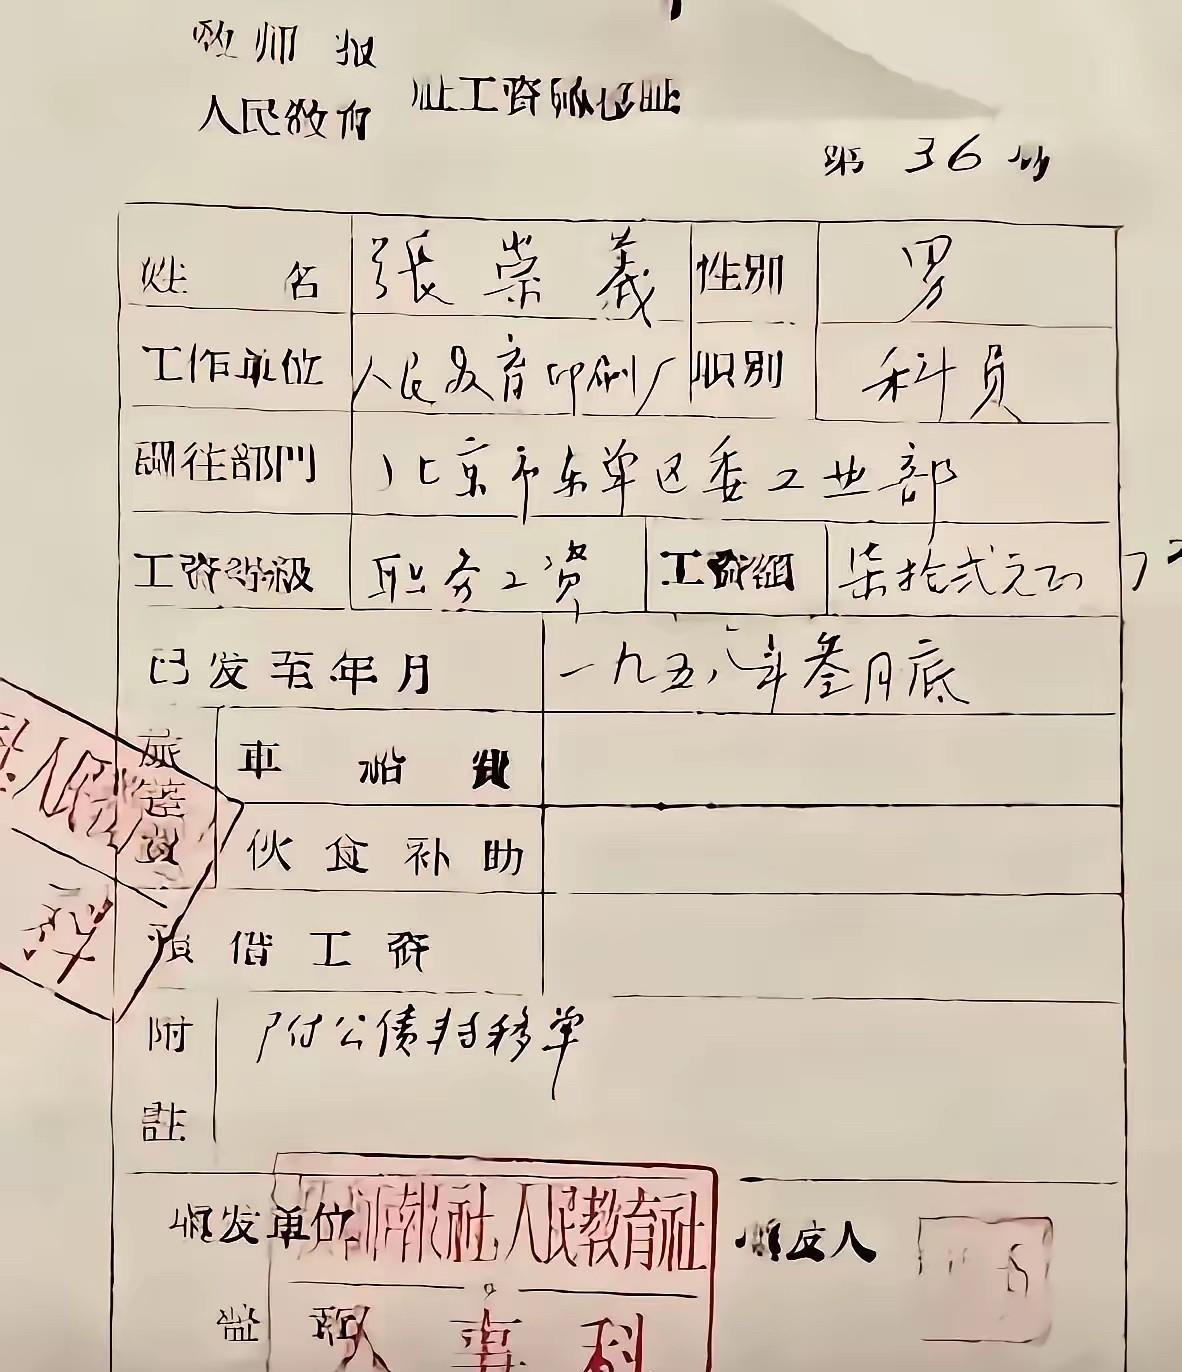 教师报
人民教育
社工资转移证
第 36 号
姓名 張崇義 性别 男
工作单位 人民教育印刷厂 职别 科员
调往部門 北京市东单区委工业部
工资等級 职务工资 工资額 柒拾弍元正 72
已发至年月 一九五八年叁月底
旅途费 車船費
伙食补助
預借工资
附註 附公债转移单
填发单位 教师報社人民教育社 填发人
盖章 人事科